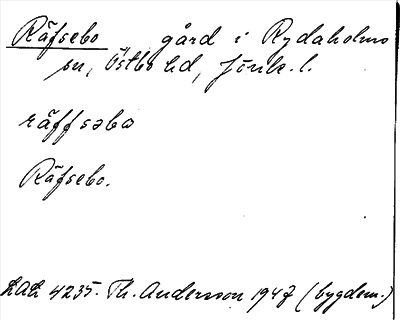 Räfsebo gård i Rydaholms
sn, Östbo hd, Jönk. l.
räffsəbo
Räfsebo.
LAL 4235. Th. Andersson 1947 (bygdem.)